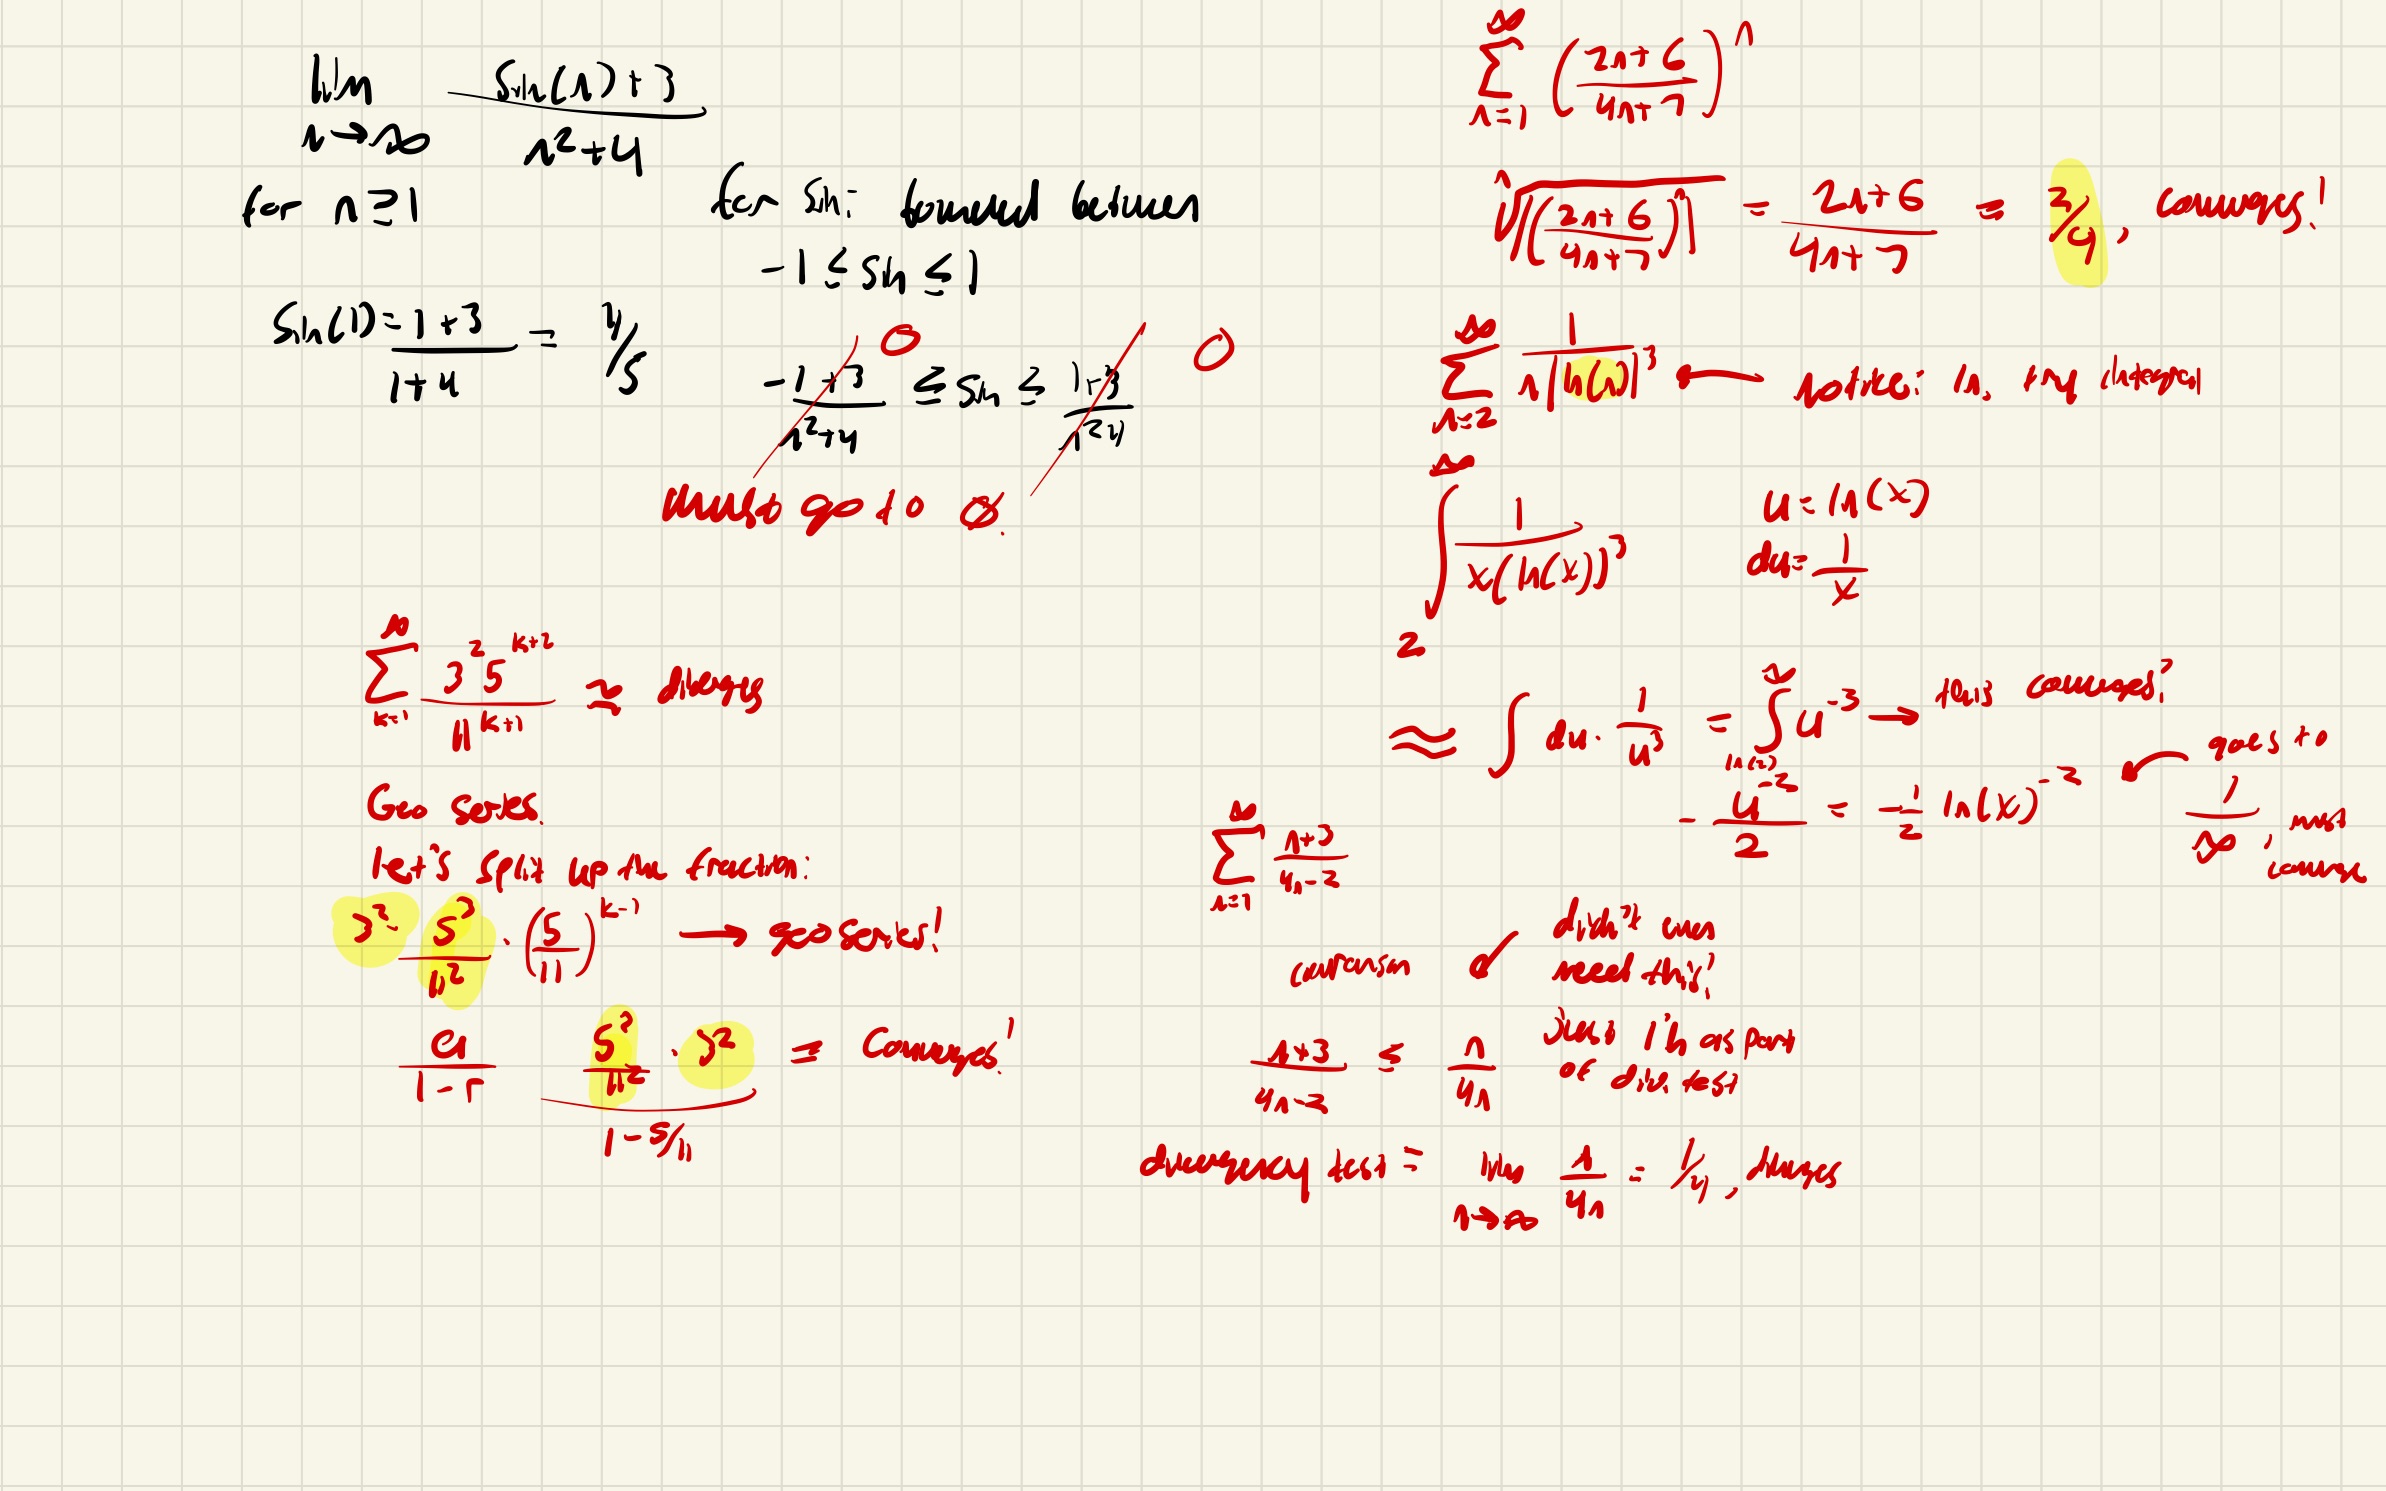 lim sin(n)+3
n→∞ n²+4
for n≥1
for sin: bounded between
-1 ≤ sin ≤ 1
sin(1)=1+3 = 4/5
1+4
-1+3 0 ≤ sin ≤ 1+3 0
n²+4 n²+4
must go to 0.
∞
∑ 3² 5^(k+2) ≈ diverges
k=1 11^(k+1)
Geo series.
let's split up the fraction:
3² · 5³/11² · (5/11)^(k-1) → geo series!
a 5³/11² · 3² = Converges!
1-r 1-5/11
∞
∑ (2n+6 / 4n+7)^n
n=1
ⁿ√|(2n+6 / 4n+7)^n| = 2n+6 / 4n+7 = 2/4, converges!
∞
∑ 1 / n[ln(n)]³ ← notice: ln, try integral
n=2
∞
∫ 1 / x(ln(x))³
2
u=ln(x)
du= 1/x
≈ ∫ du · 1/u³ = ∫ u^-3 → this converges!
∞
ln(2)
- u^-2 / 2 = -1/2 ln(x)^-2 ← goes to
1/∞, must
converge
∞
∑ n+3 / 4n-2
n=1
comparison ← didn't even
need this!
n+3 / 4n-2 ≤ n / 4n
Just 1/n as part
of div. test
divergency test = lim n/4n = 1/4, diverges
n→∞